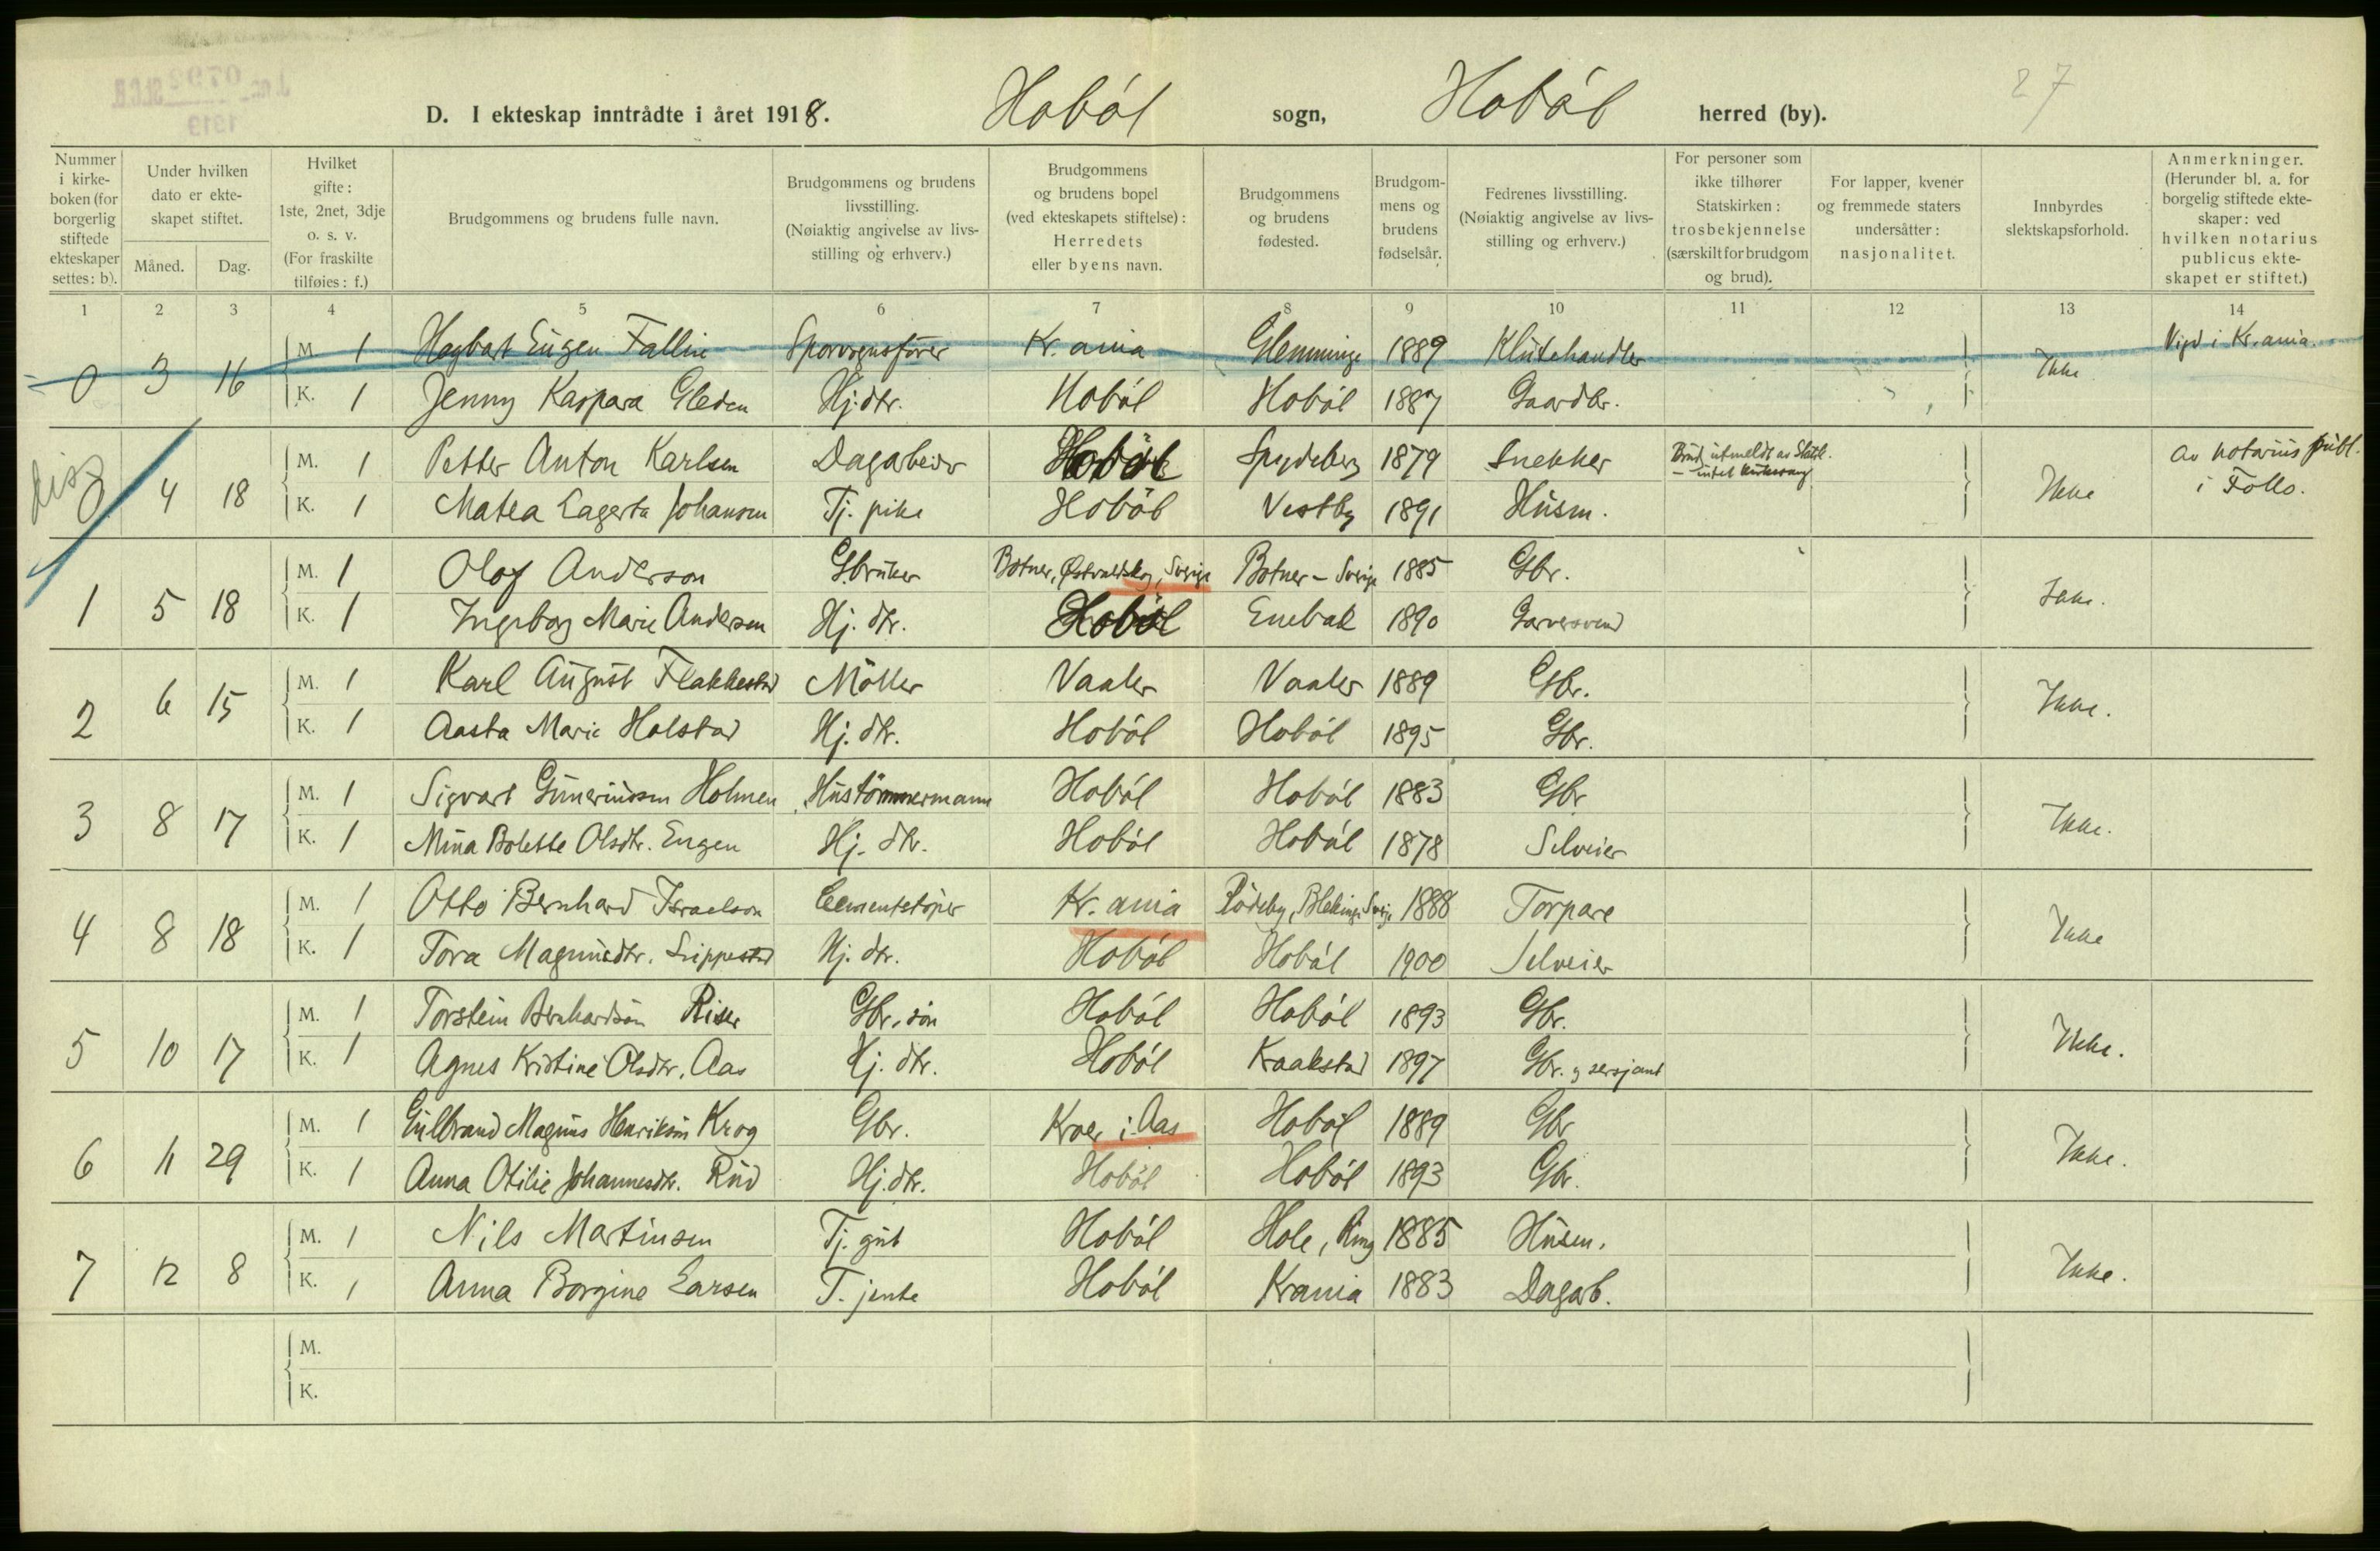 27
D. I ekteskap inntrådte i året 1918. Hobøl sogn, Hobøl herred (by).
Nummer i kirke-boken (for borgerlig stiftede ekteskaper settes: b).
Under hvilken dato er ekte-skapet stiftet.
Måned. Dag.
Hvilket gifte: 1ste, 2net, 3dje o. s. v. (For fraskilte tilføies: f.)
Brudgommens og brudens fulle navn.
Brudgommens og brudens livsstilling. (Nøiaktig angivelse av livs-stilling og erhverv.)
Brudgommens og brudens bopel (ved ekteskapets stiftelse): Herredets eller byens navn.
Brudgommens og brudens fødested.
Brudgom-mens og brudens fødselsår.
Fedrenes livsstilling. (Nøiaktig angivelse av livs-stilling og erhverv.)
For personer som ikke tilhører Statskirken: trosbekjennelse (særskilt for brudgom og brud).
For lapper, kvener og fremmede staters undersåtter: nasjonalitet.
Innbyrdes slektskapsforhold.
Anmerkninger. (Herunder bl. a. for borgelig stiftede ekte-skaper: ved hvilken notarius publicus ekte-skapet er stiftet.)
1 2 3 4 5 6 7 8 9 10 11 12 13 14
M. 1 Hagbart Eugen Falline Sporvognsfører Kr.ania Glemminge 1889 Klutehandler Vigd i Kr.ania.
0 3 16 K. 1 Jenny Kaspara Gleden Hj.dtr. Hobøl Hobøl 1887 Gaardbr. Ikke
diss
M. 1 Petter Anton Karlsen Dagarbeider Hobøl Spydeberg 1879 Snekker Brud utmeldt av Statk. – intet Av notarius publ. i Follo.
0 4 18 K. 1 Matea Lagerta Johansen Tj. pike Hobøl Vestby 1891 Husm. Ikke
M. 1 Olof Anderson Gbruker Botner, Østvaldskog, Sverige Botner – Sverige 1885 Gbr.
1 5 18 K. 1 Ingeborg Marie Andersen Hj. dtr. Hobøl Enebak 1890 Garversvend Ikke.
M. 1 Karl August Flakkestad Møller Vaaler Vaaler 1889 Gbr.
2 6 15 K. 1 Aasta Marie Holstad Hj. dtr. Hobøl Hobøl 1895 Gbr. Ikke.
M. 1 Sigvart Guneriussen Holmen Hustømmermann Hobøl Hobøl 1883 Gbr
3 8 17 K. 1 Mina Bolette Olsdtr. Engen Hj. dtr. Hobøl Hobøl 1878 Selveier Ikke.
M. 1 Otto Bernhard Israelson Cementstøper Kr.ania Rödeby, Blekinge Sverige 1888 Torpare
4 8 18 K. 1 Tora Magnusdtr. Lippestad Hj. dtr. Hobøl Hobøl 1900 Selveier Ikke
M. 1 Torstein Bernhardsøn Riser Gbr. søn Hobøl Hobøl 1893 Gbr.
5 10 17 K. 1 Agnes Kristine Olsdtr. Aas Hj. dtr. Hobøl Kraakstad 1897 Gbr. og sersjant Ikke.
M. 1 Gulbrand Magnus Henriksøn Krog Gbr. Kroer i Aas Hobøl 1889 Gbr
6 11 29 K. 1 Anna Otilie Johannesdtr. Rud Hj.dtr. Hobøl Hobøl 1893 Gbr. Ikke.
M. 1 Nils Martinsen Tj. gut Hobøl Hole, Ring 1885 Husm.
7 12 8 K. 1 Anna Borgine Larsen T. jente Hobøl Krania 1883 Dagarb. Ikke.
M.
K.